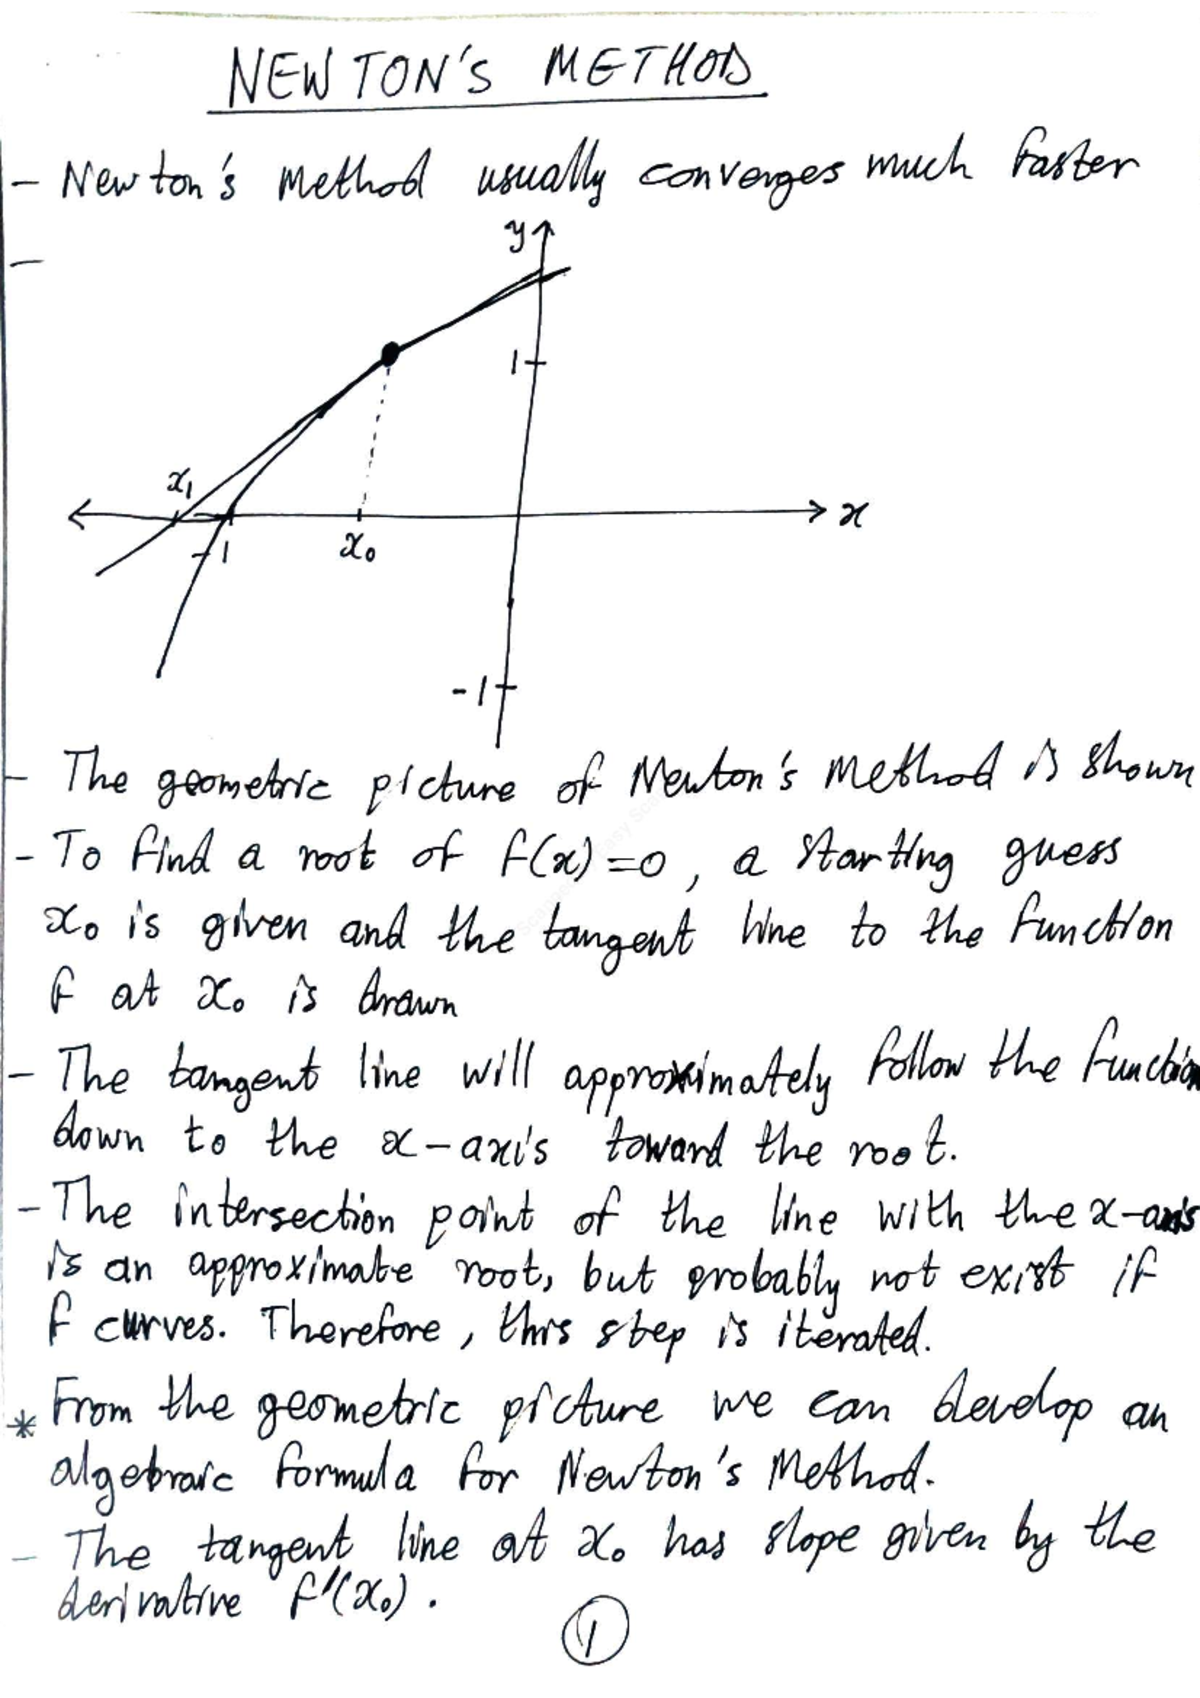 NEWTON'S METHOD
- Newton's Method usually converges much faster
-
y
1
x₁
x
-1
x₀
-1
- The geometric picture of Newton's Method is shown
- To find a root of f(x)=0, a starting guess
x₀ is given and the tangent line to the function
f at x₀ is drawn
- The tangent line will approximately follow the function
down to the x-axis toward the root.
- The intersection point of the line with the x-axis
is an approximate root, but probably not exist if
f curves. Therefore, this step is iterated.
* From the geometric picture we can develop an
algebraic formula for Newton's Method.
- The tangent line at x₀ has slope given by the
derivative f'(x₀).
1